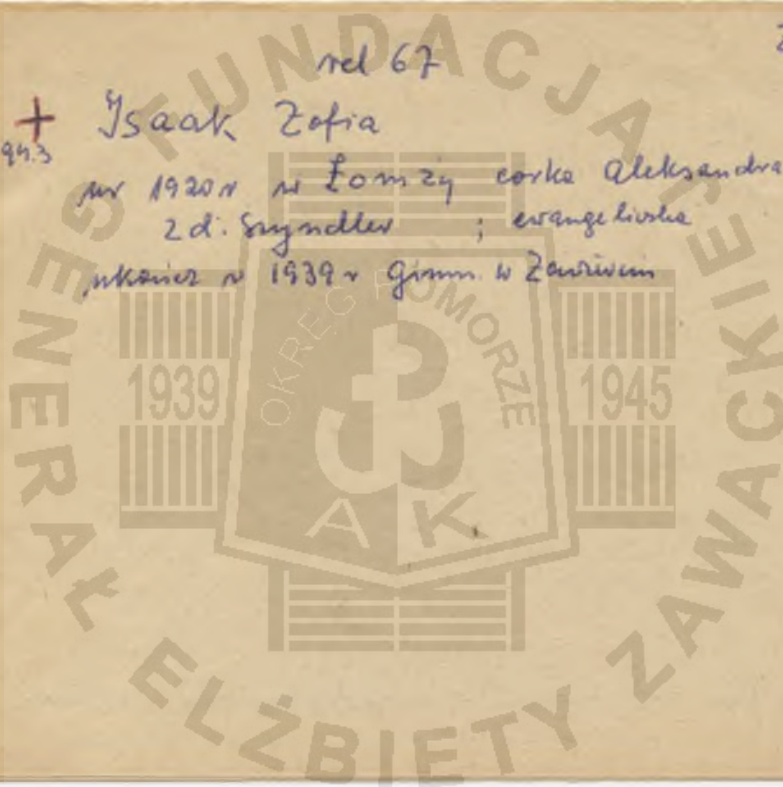 rel 67
+ Isaak Zofia
94.3
ur 1920 r w Łomży córka Aleksandra
z d. Szyndler ; ewangeliczka
ukończ w 1939 r Gimn. w
FUNDACJA
GENERAŁ ELŻBIETY ZAWACKIEJ
OKRĘG POMORZE
1939 1945
AK